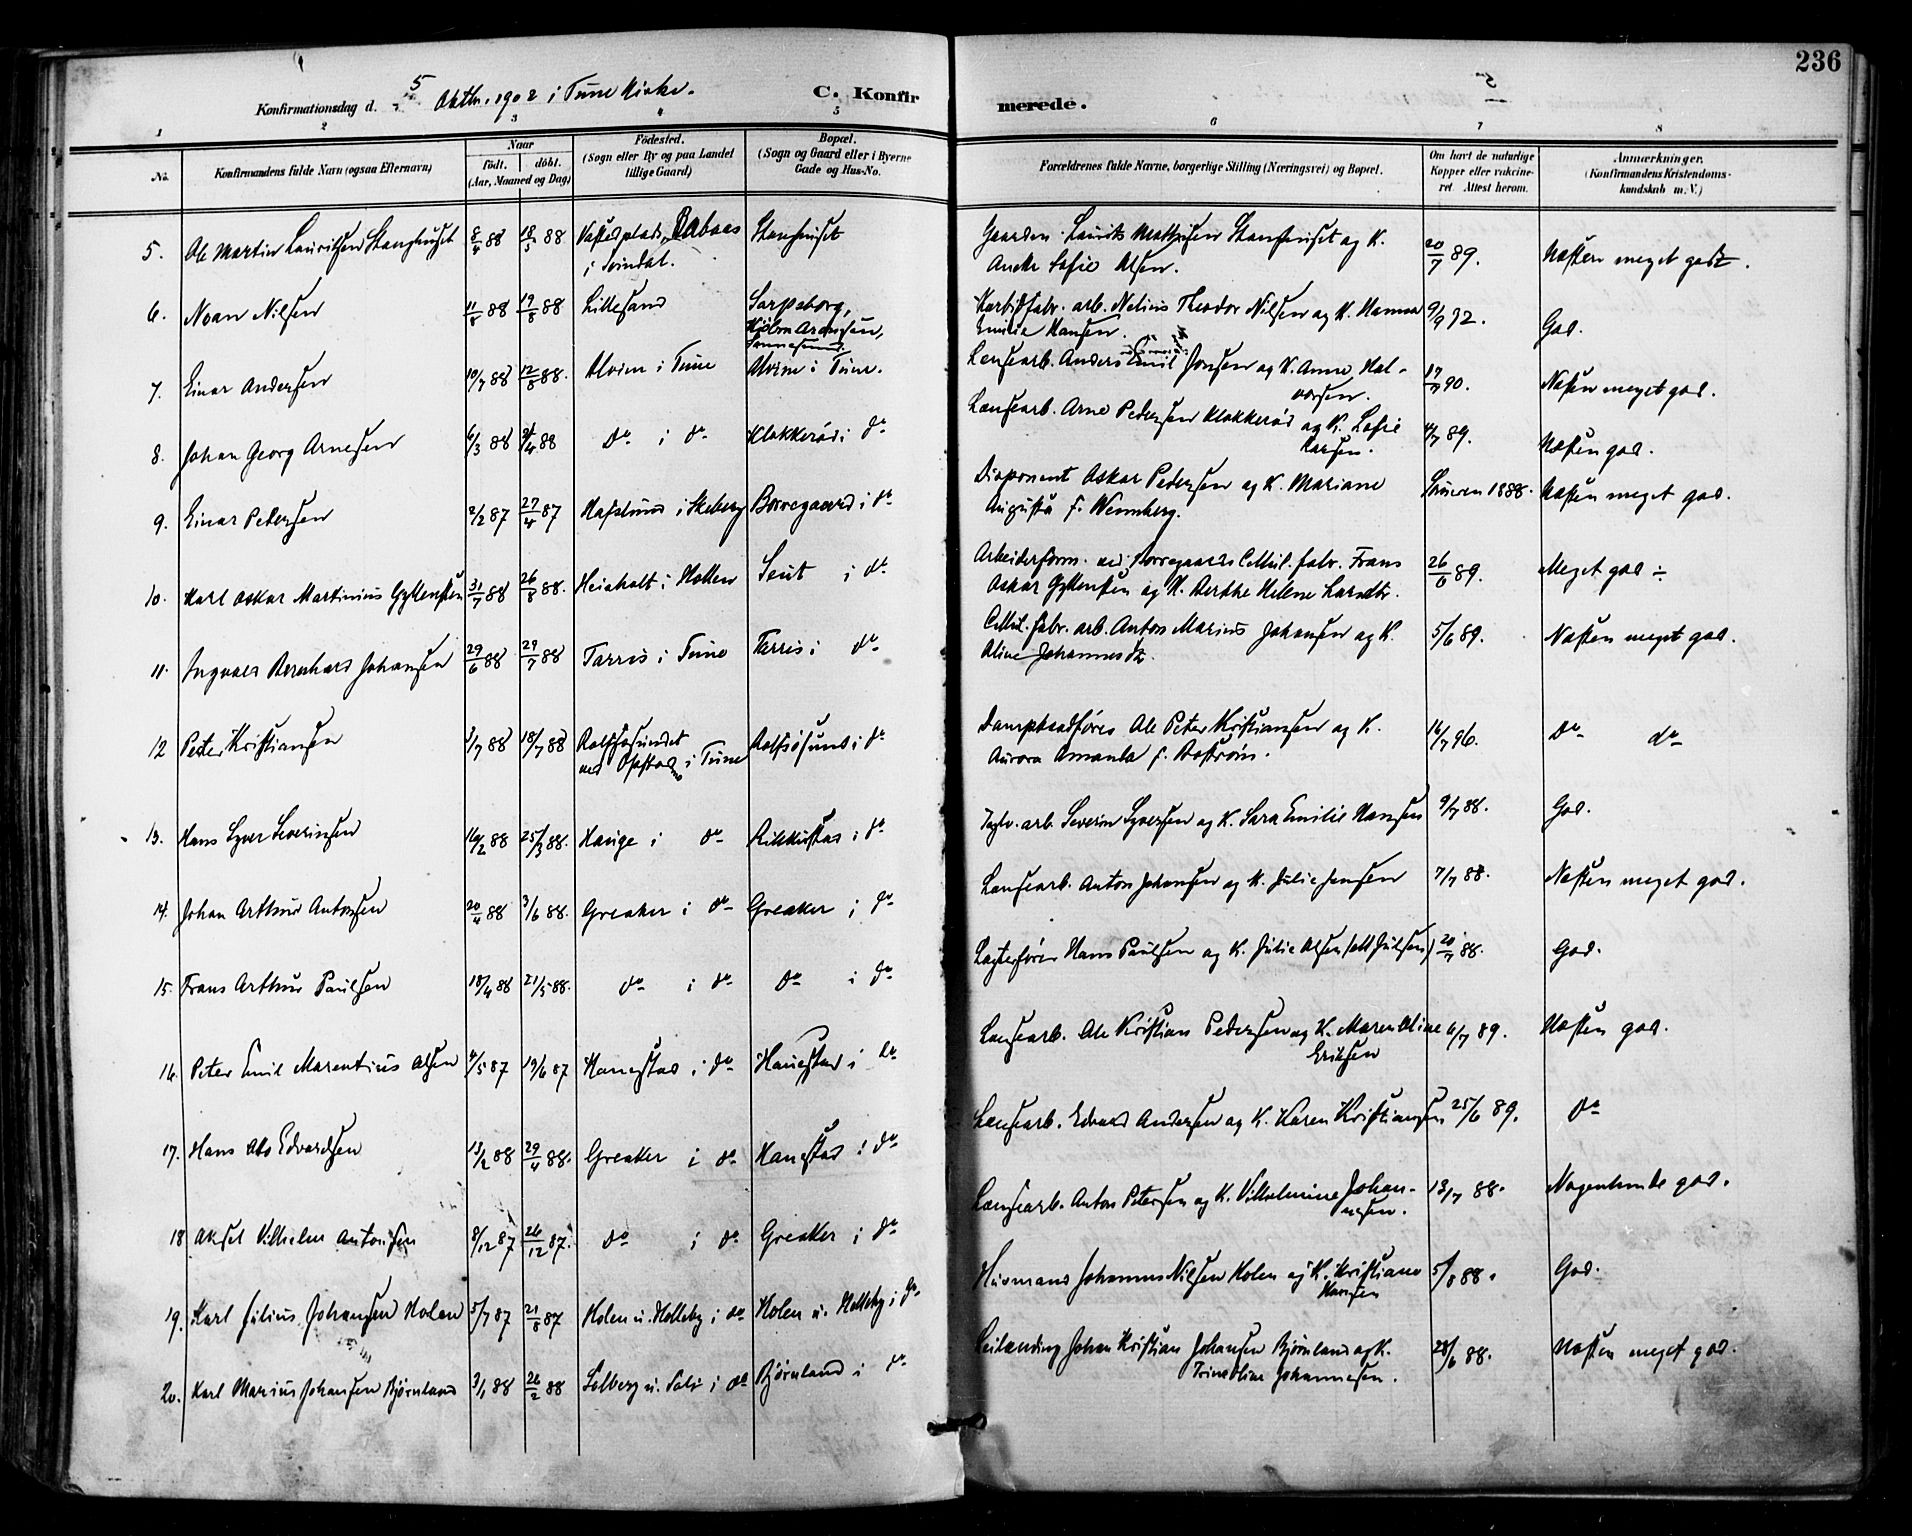 236
Konfirmationsdag d. 5 Oktbr. 1902 i Tune Kirke.
C. Konfirmerede.
1 2 3 4 5 6 7 8
No. Konfirmandens fulde Navn (ogsaa Efternavn) Naar født. døbt. (Aar, Maaned og Dag) Fødested. (Sogn eller By og paa Landet tillige Gaard) Bopæl. (Sogn og Gaard eller i Byerne Gade og Hus-No. Forældrenes fulde Navne, borgerlige Stilling (Næringsvei) og Bopæl. Om havt de naturlige Kopper eller vakcineret. Attest herom. Anmærkninger. (Konfirmandens Kristendomskundskab m. V.)
5. Ole Martin Lauritsen Stanghuset 8/4 88 18/5 88 i Svindal. Stanghuset Gaardm. Laurits Mathisen Stanghuset og K. Sofie Olsen. 20/7 89. Næsten meget godt.
6. Noan Nilsen 11/8 88 19/8 88 Lillesand Sarpsborg, Sannesund. Karbidfabr. arb. Nelius Theodor Nilsen og K. Hanna Emilie Hansen. 9/9 92. God.
7. Einar Andersen 10/7 88 12/8 88. Alvim i Tune Alvim i Tune. Lensearb. Anders Emil Jonsen og K. Anne Halvorsen. 17/7 90. Næsten meget god.
8. Johan Georg Arnesen 6/3 88 2/4 88 do i do Klokkerød i do Lensearb. Arne Pedersen Klokkerød og K. Sofie Larsen. 4/7 89. Næsten god.
9. Einar Petersen 2/2 87 27/4 87 Hafslund i Skeberg Borregaard i do Disponent Oskar Pedersen og K. Mariane Augusta f. Wennberg. 1888. Næsten meget god.
10. Karl Oskar Martinius Gyllensten 31/7 88 26/8 88. i Holten Seut i do Arbeiderform. ved Borregaards Cellul. fabr. Frans Oskar Gyllensten og K. Berthe Helene Larsdtr. 26/6 89. Meget god ÷
11. Ingvald Bernhard Johansen 29/6 88 29/7 88 Tarris i Tune Tarris i do Cellul. fabr. arb. Anton Marius Johansen og K. Oline Johannesdtr. 5/6 89. Næsten meget god.
12 Peter Kristiansen 3/7 88 18/7 88 Rolfsøsundet ved Opstad i Tune Rolfsøsund i do Dampbaadfører Ole Peter Kristiansen og K. Aurora Amanda f. 16/7 96. do do
13. Hans Syver Severinsen 16/2 88 25/3 88. Hauge i do i do arb. Severin Syversen og K. Sara Emilie Hansen 9/7 88. God.
14. Johan Arthur Antonsen 20/4 88 3/6 88. Greaker i do Greaker i do Lensearb. Anton Johansen og K. Julie Jensen 7/7 88. Næsten meget god.
15. Frans Arthur Paulsen 18/4 88 21/5 88. do i do do i do Lægterfører Hans Paulsen og K. Julie Olsen 20/7 88. God.
16. Peter Emil Marentius Olsen 4/5 87 19/6 87 Hanestad i do Hanestad i do Lensearb. Ole Kristian Pedersen og K. Maren Oline Eriksen 6/7 89. Næsten god.
17. Hans Edvardsen 13/2 88 29/4 88. Greaker i do Hanestad i do Lensearb. Edvard Andersen og K. Karen Kristiansen 25/6 89. do
18 Aksel Vilhelm Antonsen 8/12 87 26/12 87. do i do Greaker i do Lensearb. Anton Petersen og K. Vilhelmine Johannesen. 13/7 88. Nogenlunde god.
19. Karl Julius Johansen Holen 5/7 87 21/8 87 Holen u. Holleby i do Holen u. Holleby i do Husmand Johannes Nilsen Holen og K. Kristiane Hansen 5/8 88. God.
20. Karl Marius Johansen Bjørnland 3/1 88 26/2 88 Solberg u. i do Bjørnland i do Leilænding Johan Kristian Johansen Bjørnland og K. Trine Oline Johannesen. 28/6 88. Næsten meget god.